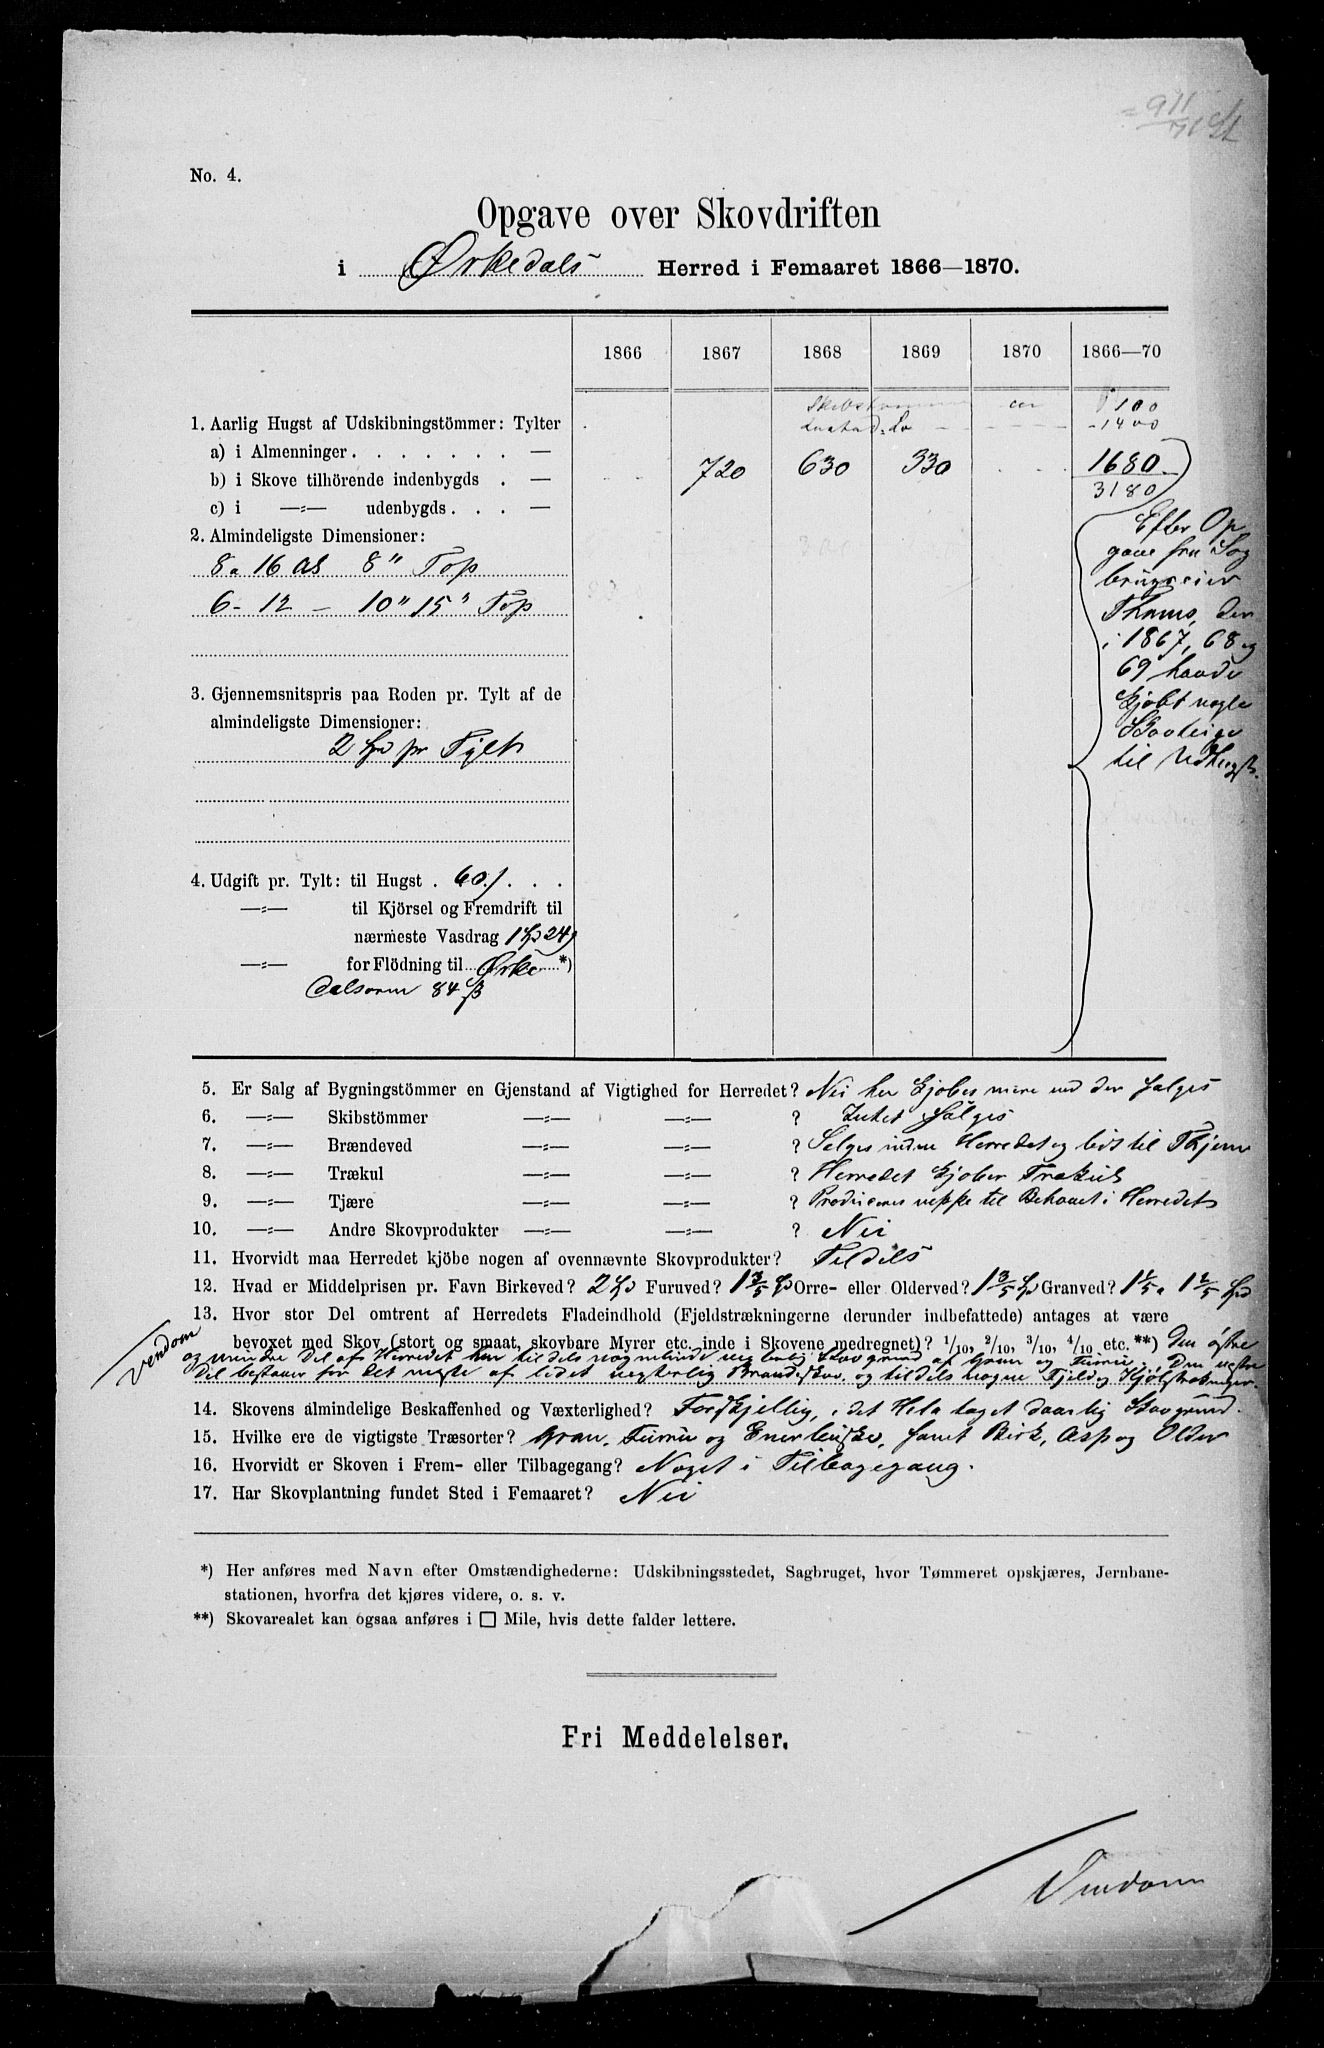 911
No. 4.
Opgave over Skovdriften
i Ørkedals Herred i Femaaret 1866—1870.
1866 1867 1868 1869 1870 1866—70
100
1400
1. Aarlig Hugst af Udskibningstömmer: Tylter
a) i Almenninger . . . . . . . —
b) i Skove tilhörende indenbygds . — 720 630 330 1680
3180
c) i —„— udenbygds . . . —
2. Almindeligste Dimensioner:
8 a 16 al 8" Top
6 - 12 — 10" 15" Top
Efter Op
gave fra Sag
brugseier
Thams, der
i 1867, 68 og
69 havde
Kjøbt nogle
til Udhugst.
3. Gjennemsnitspris paa Roden pr. Tylt af de
almindeligste Dimensioner:
2 Spd pr Tylt
4. Udgift pr. Tylt: til Hugst . 60 . . .
—„— til Kjörsel og Fremdrift til
nærmeste Vasdrag 1 Spd 24
—„— for Flödning til Ørke *)
dalsøren 84 ß
5. Er Salg af Bygningstömmer en Gjenstand af Vigtighed for Herredet? Nei her kjøbes mere end der sælges
6. —„— Skibstömmer —„— —„— ? Intet sælges
7. —„— Brændeved —„— —„— ? Sælges inden Herredet og lidt til Thjem
8. —„— Trækul —„— —„— ? Herredet kjøber Trækul
9. —„— Tjære —„— —„— ? Produceres neppe til Behovet i Herredet
10. —„— Andre Skovprodukter —„— —„— ? Nei
11. Hvorvidt maa Herredet kjöbe nogen af ovennævnte Skovprodukter? Tildels
12. Hvad er Middelprisen pr. Favn Birkeved? 2 Spd Furuved? 1 3/5 Spd Orre- eller Olderved? 1 3/5 Spd Granved? 1 1/5 a 1 2/5 Spd
13. Hvor stor Del omtrent af Herredets Fladeindhold (Fjeldstrækningerne derunder indbefattede) antages at være
bevoxet med Skov (stort og smaat, skovbare Myrer etc. inde i Skovene medregnet)? 1/10, 2/10, 3/10, 4/10 etc. **) Den østre
og mindre Del af Herredet har tildels nogenlunde Skovgrund af Gran og Furru. Den vestre
Del bestaaer for det meste af lidet vegterlig Brændeskov, og tildels nogne Fjeld og
Vendom
14. Skovens almindelige Beskaffenhed og Växterlighed? Forskjellig, i det Hele taget daarlig Skovgrund.
15. Hvilke ere de vigtigste Træsorter? Gran, Furru og Enerbuske, samt Birk, Asp og Older
16. Hvorvidt er Skoven i Frem- eller Tilbagegang? Noget i Tilbagegang.
17. Har Skovplantning fundet Sted i Femaaret? Nei
*) Her anføres med Navn efter Omstændighederne: Udskibningsstedet, Sagbruget, hvor Tømmeret opskjæres, Jernbane-
stationen, hvorfra det kjøres videre, o. s. v.
**) Skovarealet kan ogsaa anføres i □ Mile, hvis dette falder lettere.
Fri Meddelelser.